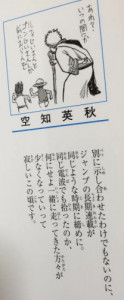 あれ?
いつの間に…
空知英秋
別に示し合わせたわけでもないのに、
ジャンプの長期連載が
同じような時期に締めに。
同じ電波でも拾ったのか、
何にせよ一緒に走ってきた方々が
少なくなっていって
寂しいこの頃です。